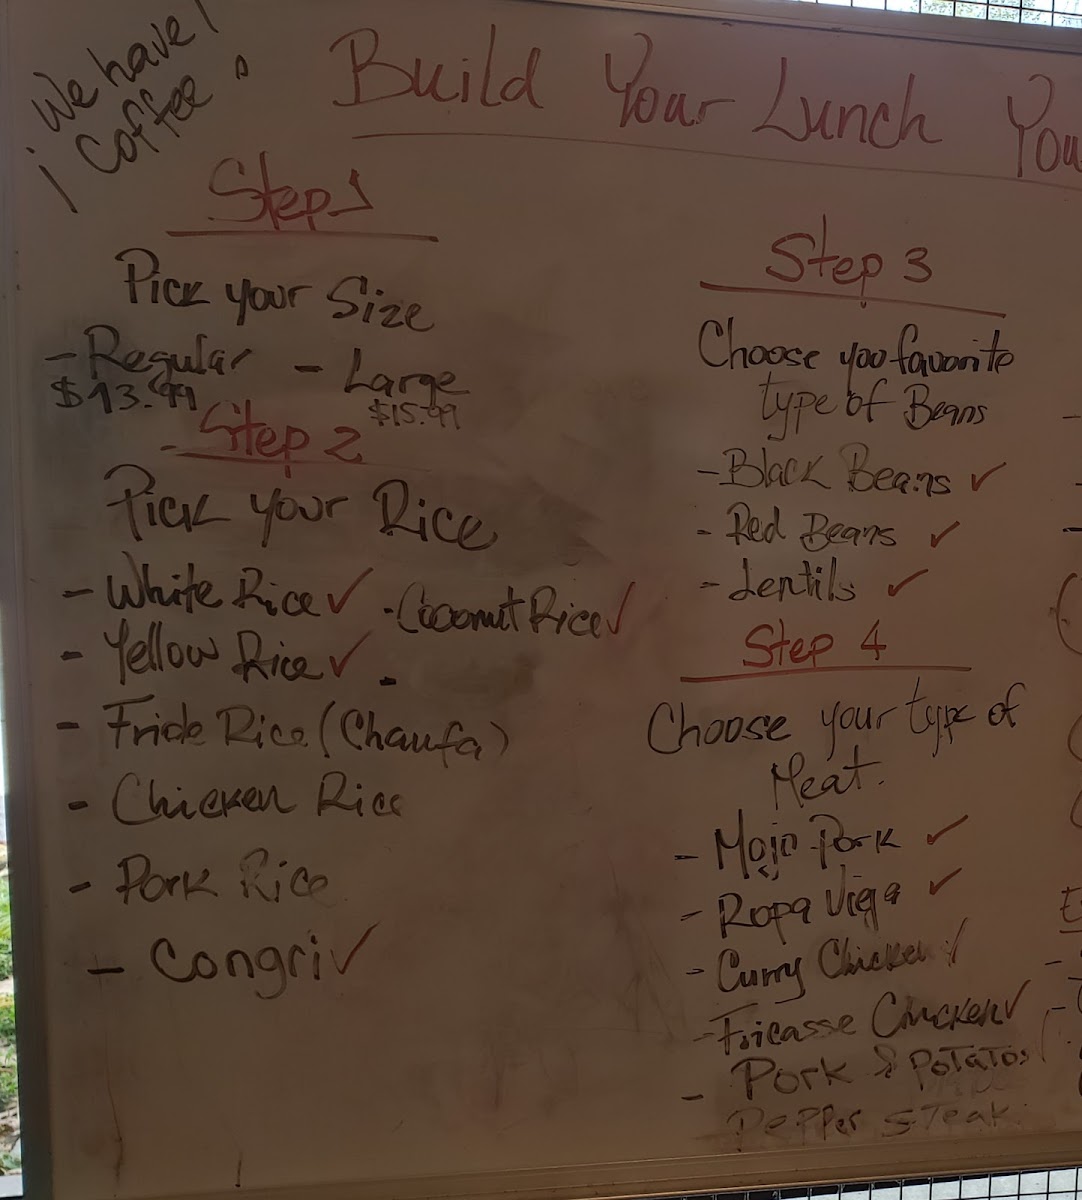 ¡ We have !
Coffee
Build Your Lunch You
Step 1
Pick your Size
- Regular - Large
$13.99 $15.99
- Step 2
Pick your Rice
- White Rice ✓ - Coconut Rice ✓
- Yellow Rice ✓ -
- Fride Rice (Chaufa)
- Chicken Rice
- Pork Rice
- Congri ✓
Step 3
Choose you favorite
type of Beans
- Black Beans ✓
- Red Beans ✓
- Lentils ✓
Step 4
Choose your type of
Meat.
- Mojo Pork ✓
- Ropa Vieja ✓
- Curry Chicken ✓
- Fricasse Chicken ✓
- Pork & Potatos
Pepper Steak